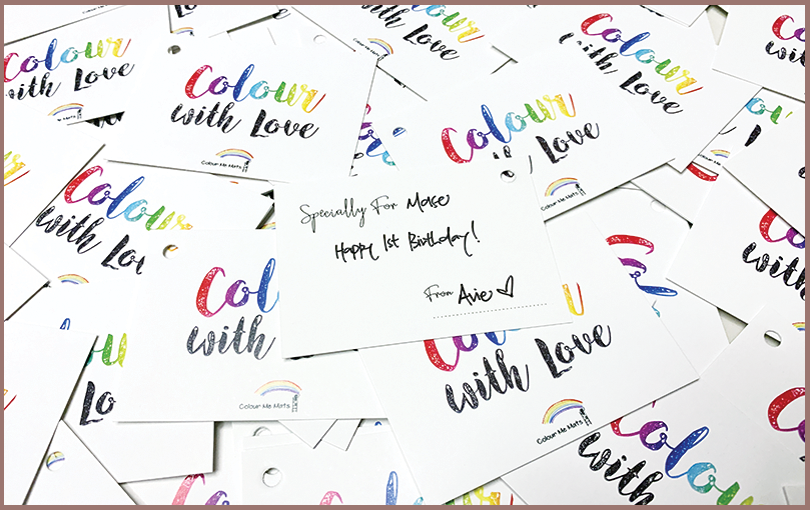 Colour
with Love
Colour
with Love
Colour Me Mats
Colour
with Love
Colour
with Love
Colour
with Love
Colour Me Mats
Colour
with Lo
Specially For Mase
Happy 1st Birthday!
From Avie
Col
with
Colour Me Mats
with Love
Colour Me Mats
Lo
Colour
with Love